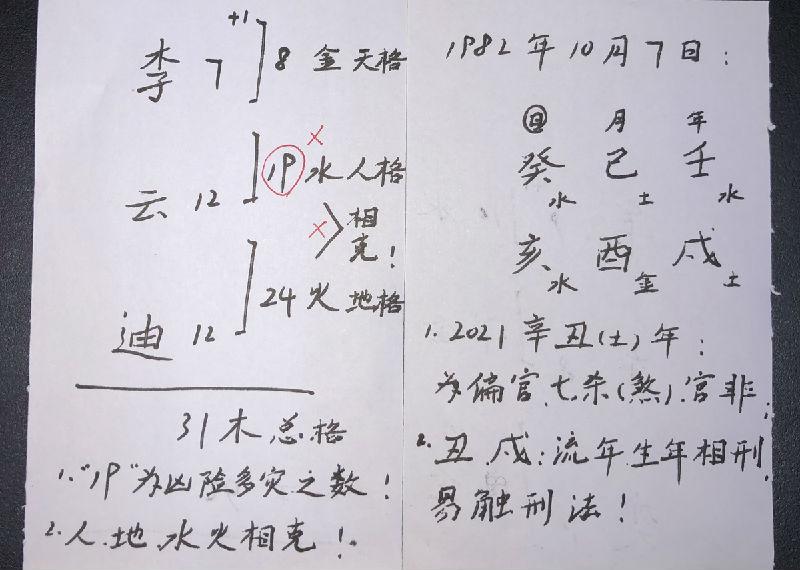 +1
李 7 ] 8 金 天格
云 12 ] 19 水 人格
× × > 相克!
迪 12 ] 24 火 地格
31 木 总格
1. "19"为凶险多灾之数!
2. 人.地.水火相克!
1982年10月7日:
日 月 年
癸水 己土 壬水
亥水 酉金 戌土
1. 2021辛丑(土)年:
为偏官.七杀(煞).官非;
2. 丑.戌:流年.生年相刑,
易触刑法!